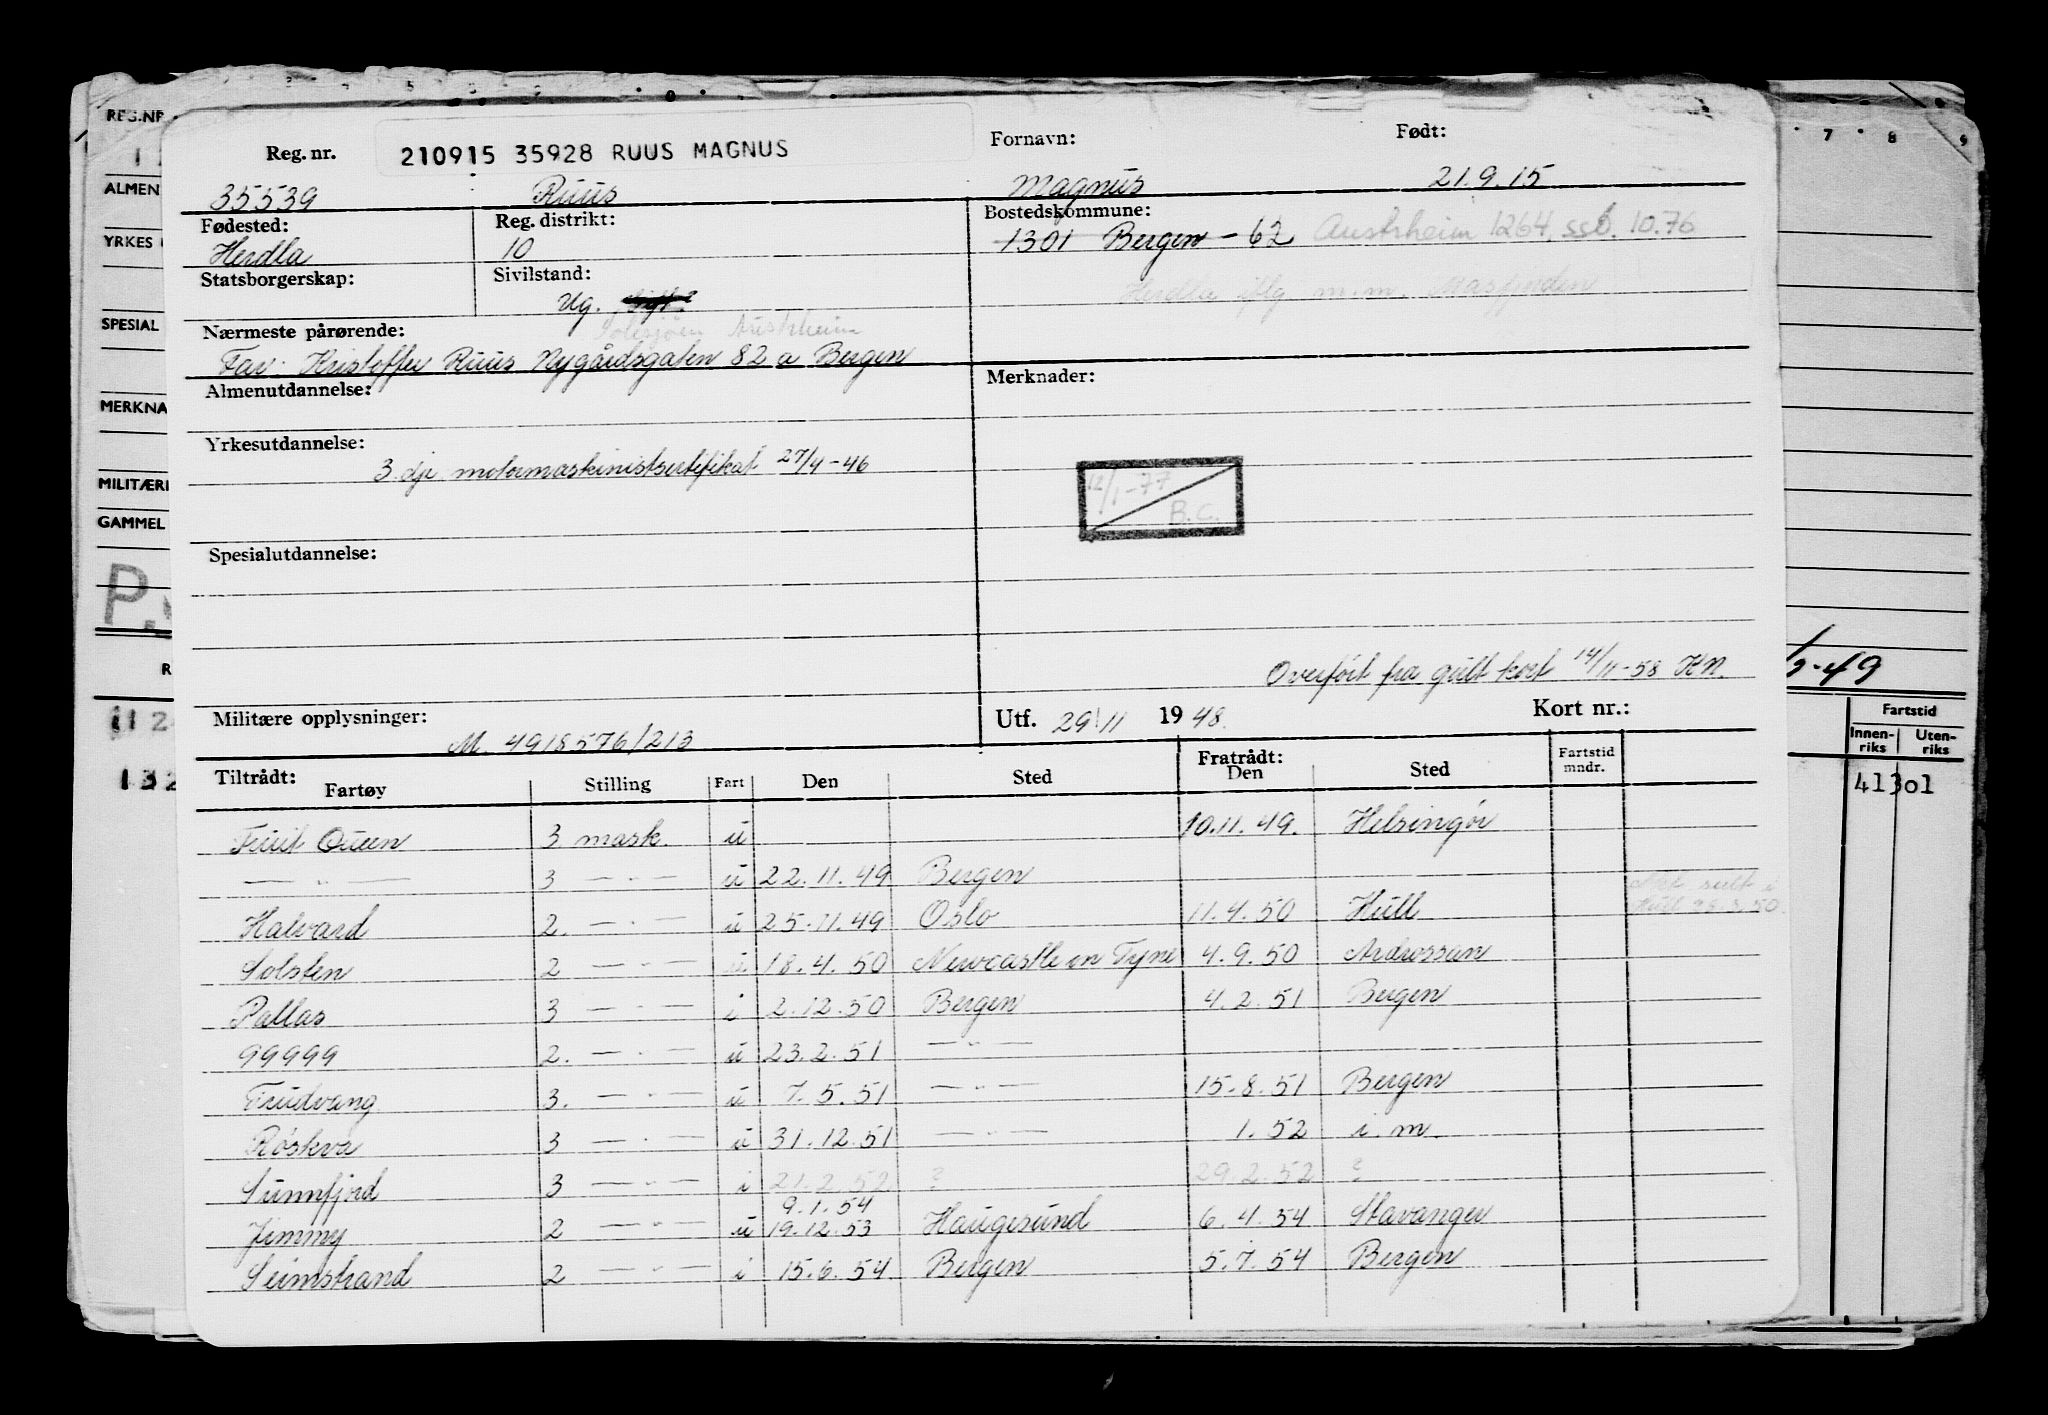 REG.NR.
ALMEN
YRKES
SPESIAL
MERKNA
MILITÆRE
GAMMEL
P.
Reg. nr. 210915 35928 RUUS MAGNUS Fornavn: Født:
35539 Ruus Magnus 21.9.15
Fødested: Reg. distrikt: Bostedskommune:
Herdla 10 1301 Bergen - 62 Austrheim 1264. ssb. 10.76
Statsborgerskap: Sivilstand:
Ug. Gift? Herdla iflg m.m. Masfjorden
Nærmeste pårørende: Austrheim
Far: Kristoffer Ruus Nygårdsgaten 82 a Bergen
Almenutdannelse: Merknader:
Yrkesutdannelse:
3. dje motormaskinistsertifikat 27/4-46
12/1-77
B.C.
Spesialutdannelse:
Overført fra gult kort 14/11-58 KN.
Militære opplysninger: Utf. 29/11 1948. Kort nr.:
M. 4918576/213
Tiltrådt: Fratrådt: Fartstid
Fartøy Stilling Fart Den Sted Den Sted mndr.
Fruit Queen 3 mask. u 10.11.49. Helsingør
— " — 3 — " — u 22.11.49 Bergen
Halvard 2. — " — u 25.11.49 Oslo 11.4.50 Hull
Solsten 2 — " — u 18.4.50 Newcastle on Tyne 4.9.50 Ardrossan
Pallas 3 — " — i 2.12.50 Bergen 4.2.51 Bergen
99999 2. — " — u 23.2.51 — " —
Trudvang 3. — " — u 7.5.51 — " — 15.8.51 Bergen
Røskva 3 — " — u 31.12.51 — " — 1.52 i.m.
Sunnfjord 3 — " — i 21.2.52 ? 29.2.52 ?
9.1.54
Jimmy 2 — " — u 19.12.53 Haugesund 6.4.54 Stavanger
Seimstrand 2 — " — i 15.6.54 Bergen 5.7.54 Bergen
7 8 9
-49
Fartstid
Innen-riks Uten-riks
41301